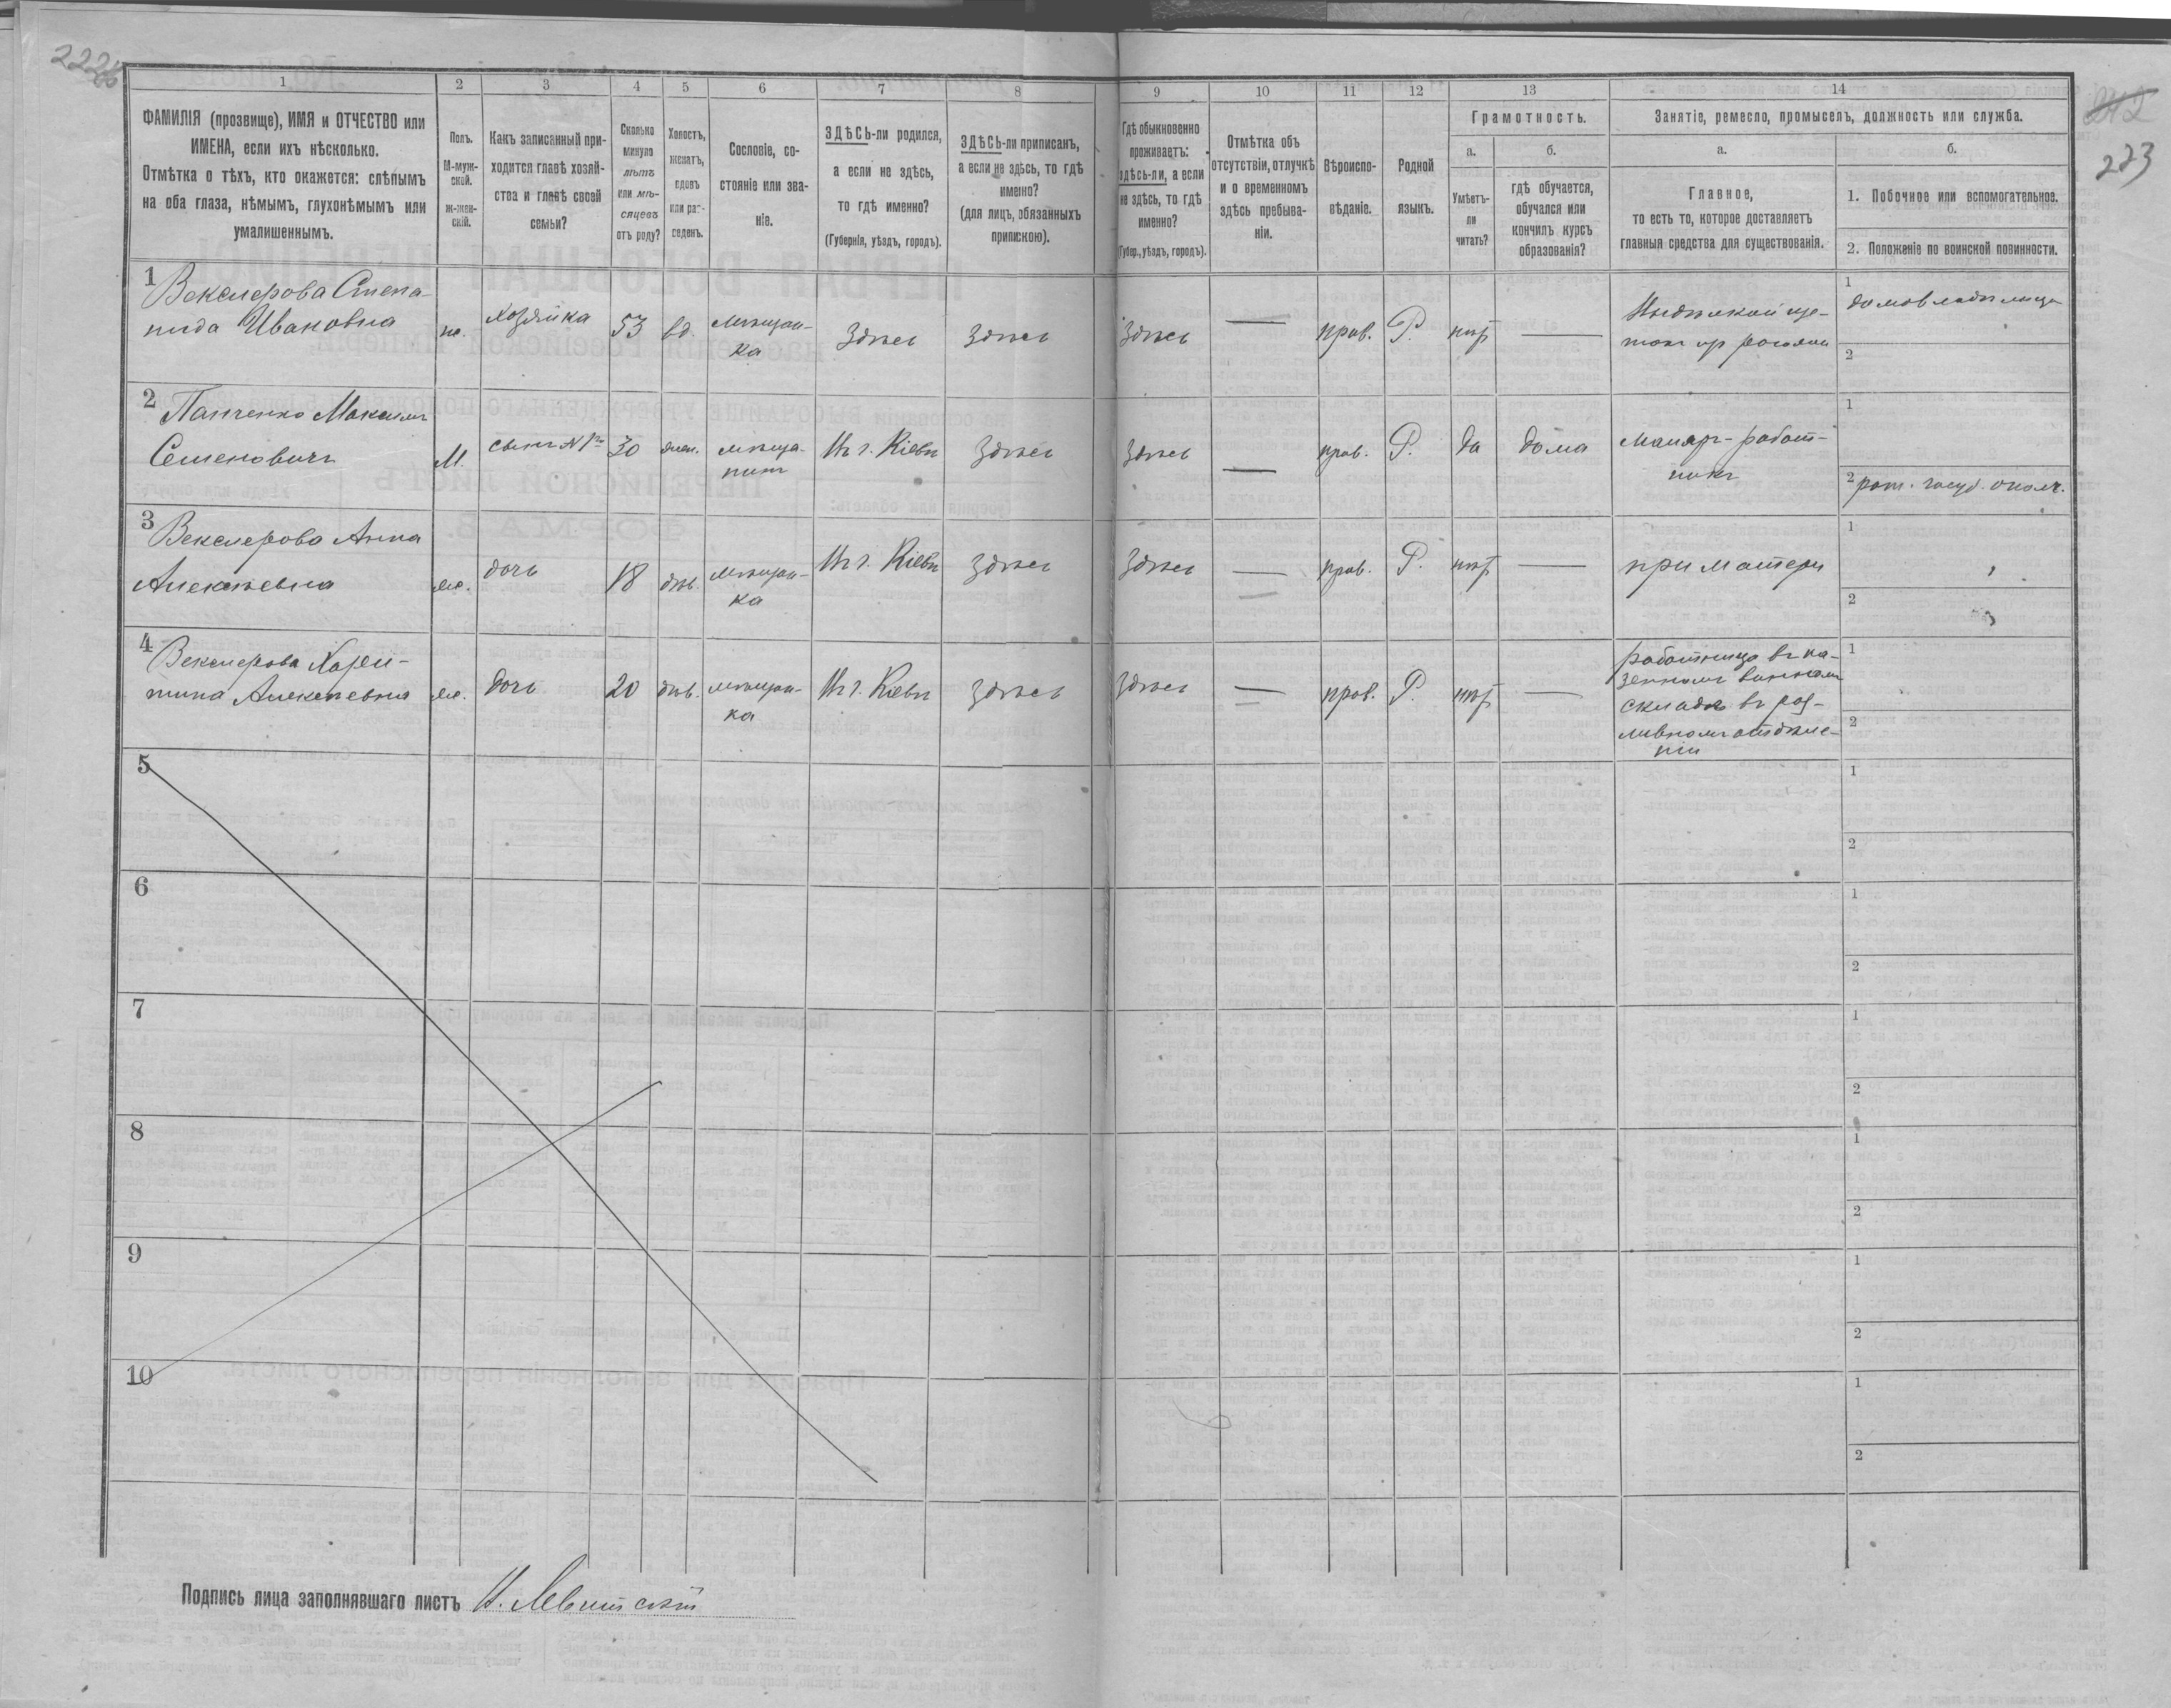 222об
1
2
3
4
5
6
7
8
9
10
11
12
13
14
ФАМИЛІЯ (прозвище), ИМЯ и ОТЧЕСТВО или
ИМЕНА, если ихъ нѣсколько.
Отмѣтка о тѣхъ, кто окажется: слѣпымъ
на оба глаза, нѣмымъ, глухонѣмымъ или
умалишеннымъ.
Полъ.
М-муж-
ской.
Ж-жен-
скій.
Какъ записанный при-
ходится главѣ хозяй-
ства и главѣ своей
семьи?
Сколько
минуло
лѣтъ
или мѣ-
сяцевъ
отъ роду?
Холостъ,
женатъ,
вдовъ
или раз-
веденъ.
Сословіе, со-
стояніе или зва-
ніе.
ЗДѢСЬ-ли родился,
а если не здѣсь,
то гдѣ именно?
(Губернія, уѣздъ, городъ).
ЗДѢСЬ-ли приписанъ,
а если не здѣсь, то гдѣ
именно?
(для лицъ, обязанныхъ
припискою).
Гдѣ обыкновенно
проживаетъ:
здѣсь-ли, а если
не здѣсь, то гдѣ
именно?
(Губер., уѣздъ, городъ).
Отмѣтка объ
отсутствіи, отлучкѣ
и о временномъ
здѣсь пребыва-
ніи.
Вѣроиспо-
вѣданіе.
Родной
языкъ.
Грамотность.
а.
Умѣетъ-
ли
читать?
б.
гдѣ обучается,
обучался или
кончилъ курсъ
образованія?
Занятіе, ремесло, промыселъ, должность или служба.
а.
Главное,
то есть то, которое доставляетъ
главныя средства для существованія.
б.
1. Побочное или вспомогательное.
2. Положеніе по воинской повинности.
223
1
Векслерова Степа-
нида Ивановна
ж.
Хозяйка
53
вд.
мѣщан-
ка
Здѣсь
Здѣсь
Здѣсь
—
прав.
Р.
нѣт
—
1
домовладѣлица
2
2
Панченко Максимъ
Семеновичъ
М.
сынъ N 1го
30
жен.
мѣща-
нинъ
Въ г. Кіевѣ
Здѣсь
Здѣсь
—
прав.
Р.
да
дома
Маляръ-работ-
никъ
1
2
рат. госуд. ополч.
3
Векслерова Анна
Алексѣевна
ж.
дочь
18
дѣв.
мѣщан-
ка
Въ г. Кіевѣ
Здѣсь
Здѣсь
—
прав.
Р.
нѣт
—
при матери
1
2
4
Векслерова Хари-
тина Алексѣевна
ж.
дочь
20
дѣв.
мѣщан-
ка
Въ г. Кіевѣ
Здѣсь
Здѣсь
—
прав.
Р.
нѣт
—
работница въ ка-
зенномъ винномъ
складѣ въ раз-
ливномъ отдѣле-
ніи
1
2
5
1
2
6
1
2
7
1
2
8
1
2
9
1
2
10
1
2
Подпись лица заполнявшаго листъ Н. Левитскій